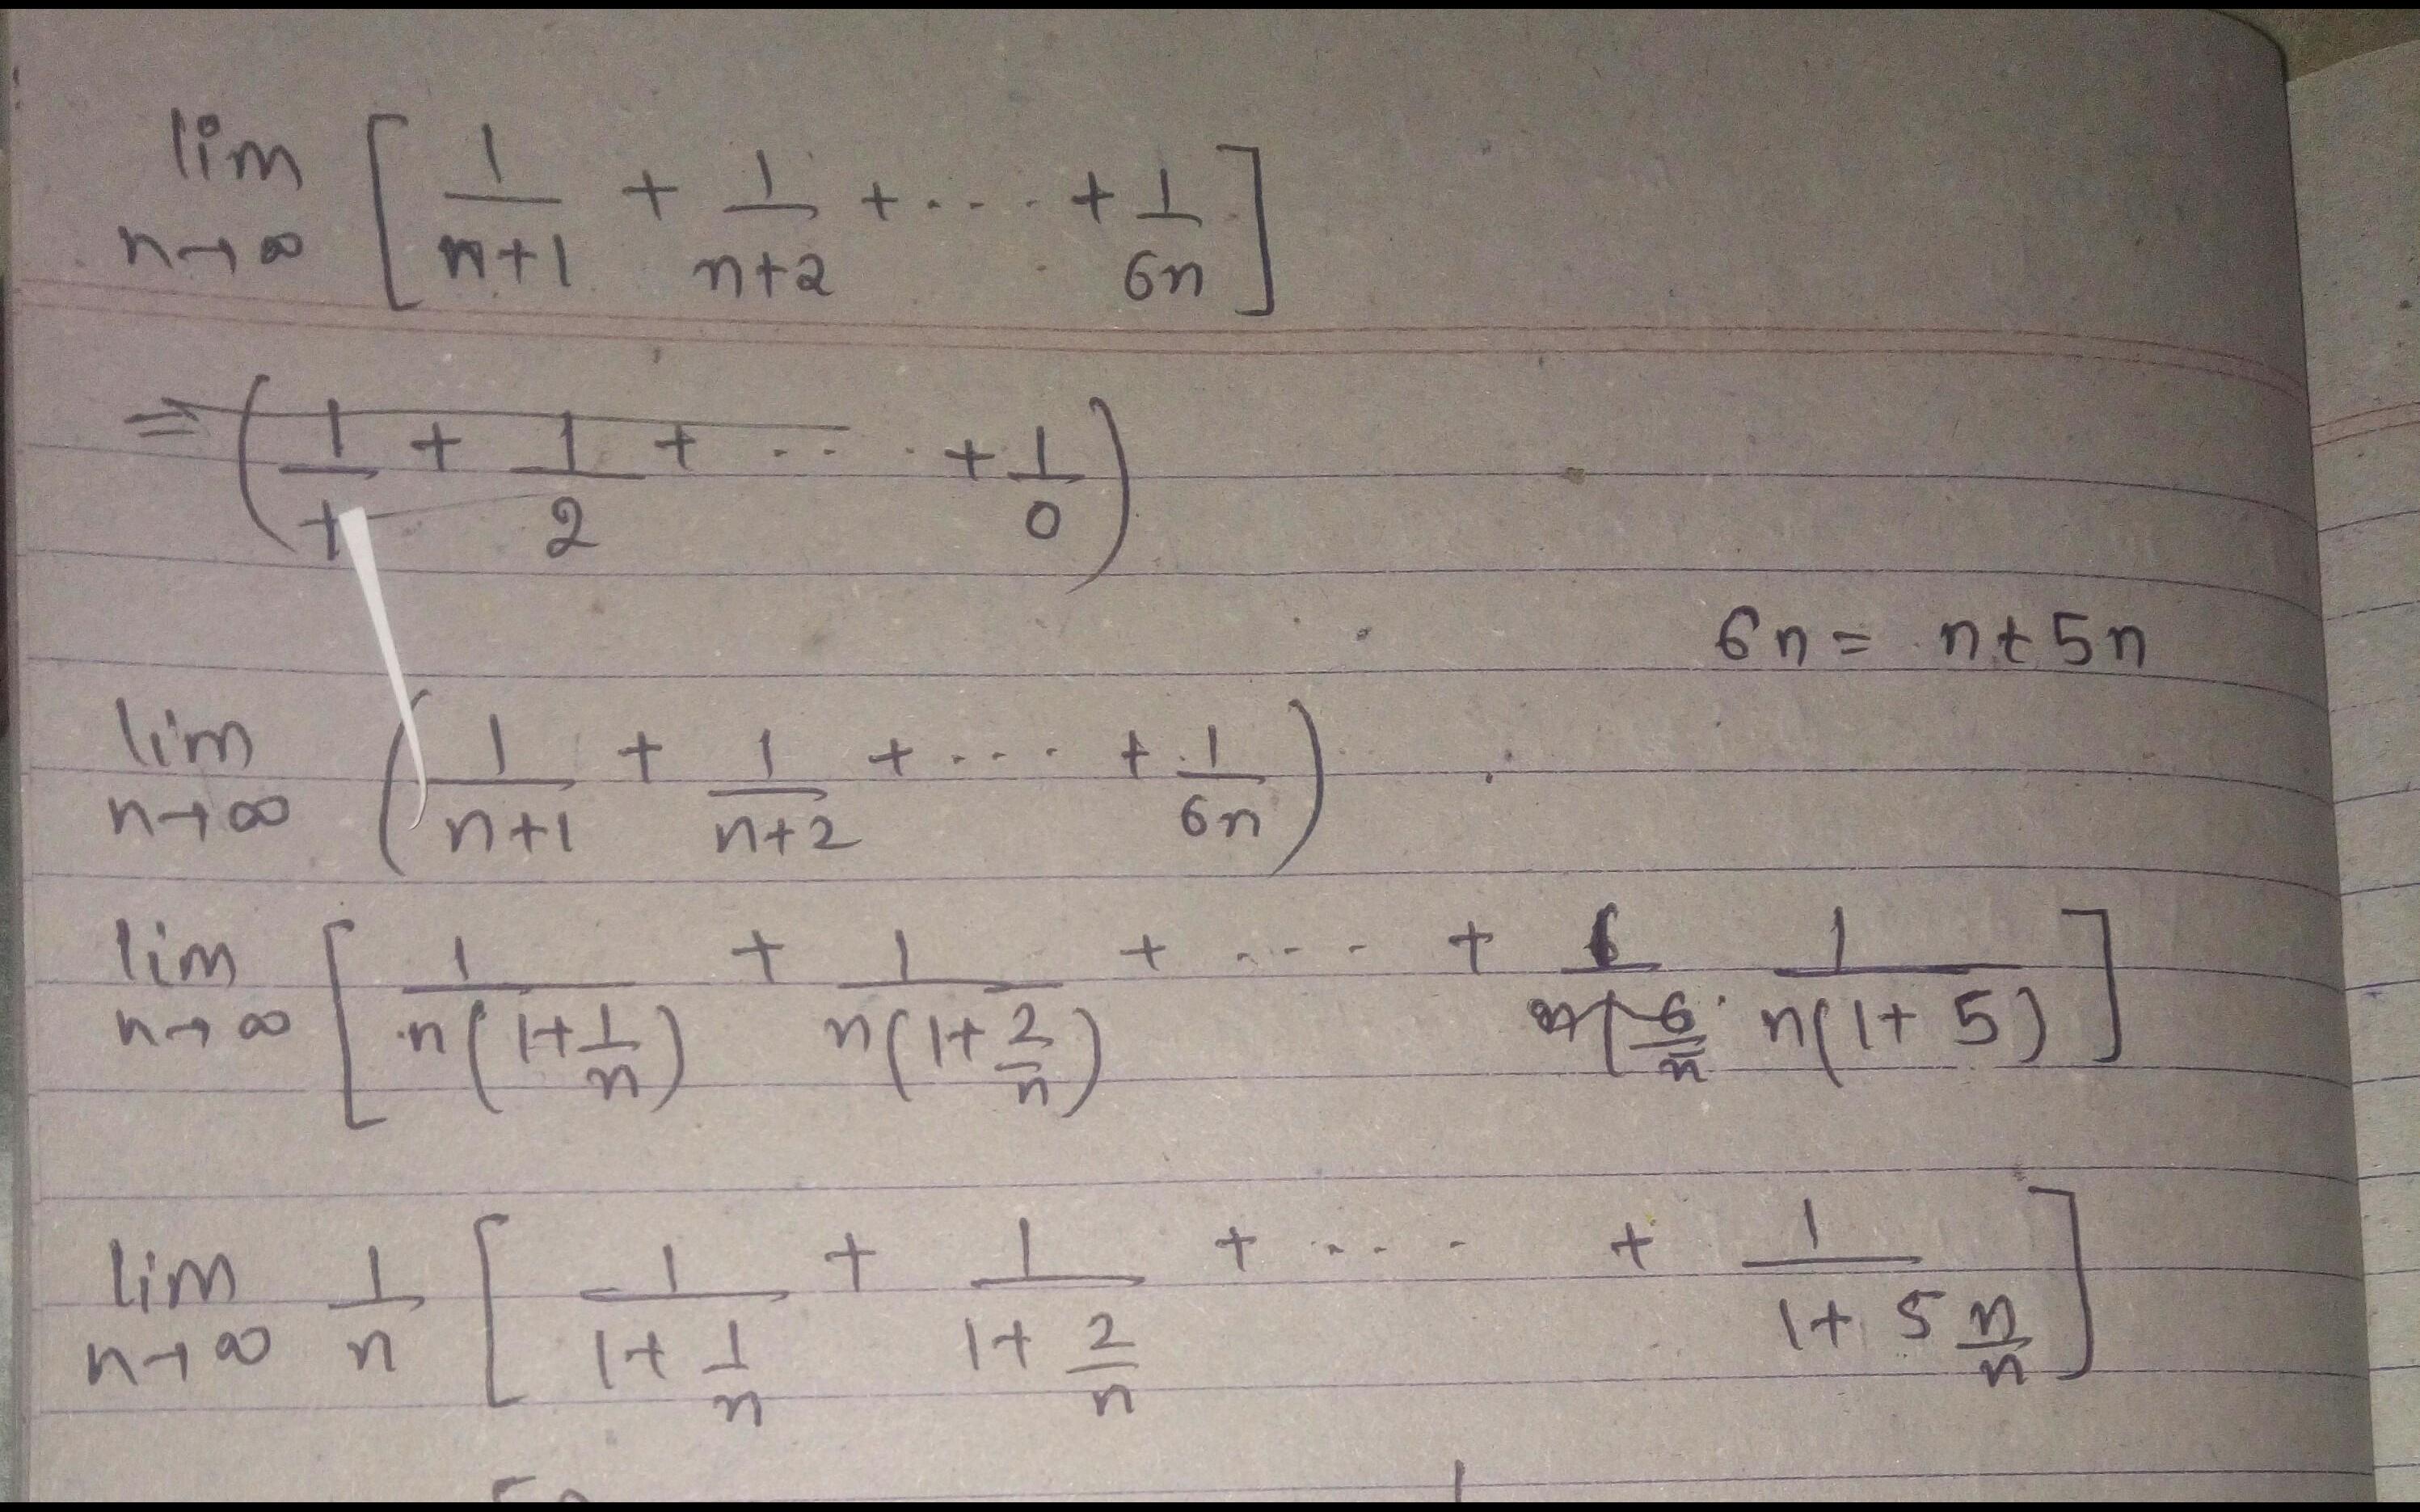 lim n→∞ [ 1/(n+1) + 1/(n+2) + .... + 1/6n ]
= ( 1/1 + 1/2 + .. . + 1/0 )
6n = n+5n
lim n→∞ ( 1/(n+1) + 1/(n+2) + .... + 1/6n )
lim n→∞ [ 1/(n(1+1/n)) + 1/(n(1+2/n)) + .... + 1/(n(1+5)) ]
lim n→∞ 1/n [ 1/(1+1/n) + 1/(1+2/n) + .... + 1/(1+5 n/n) ]